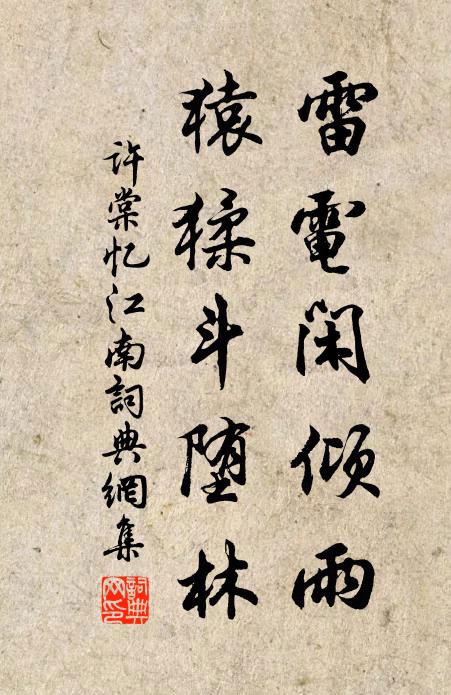 雷電閑傾雨
猿猱斗堕林
许棠忆江南詞典網集
詞典
网印